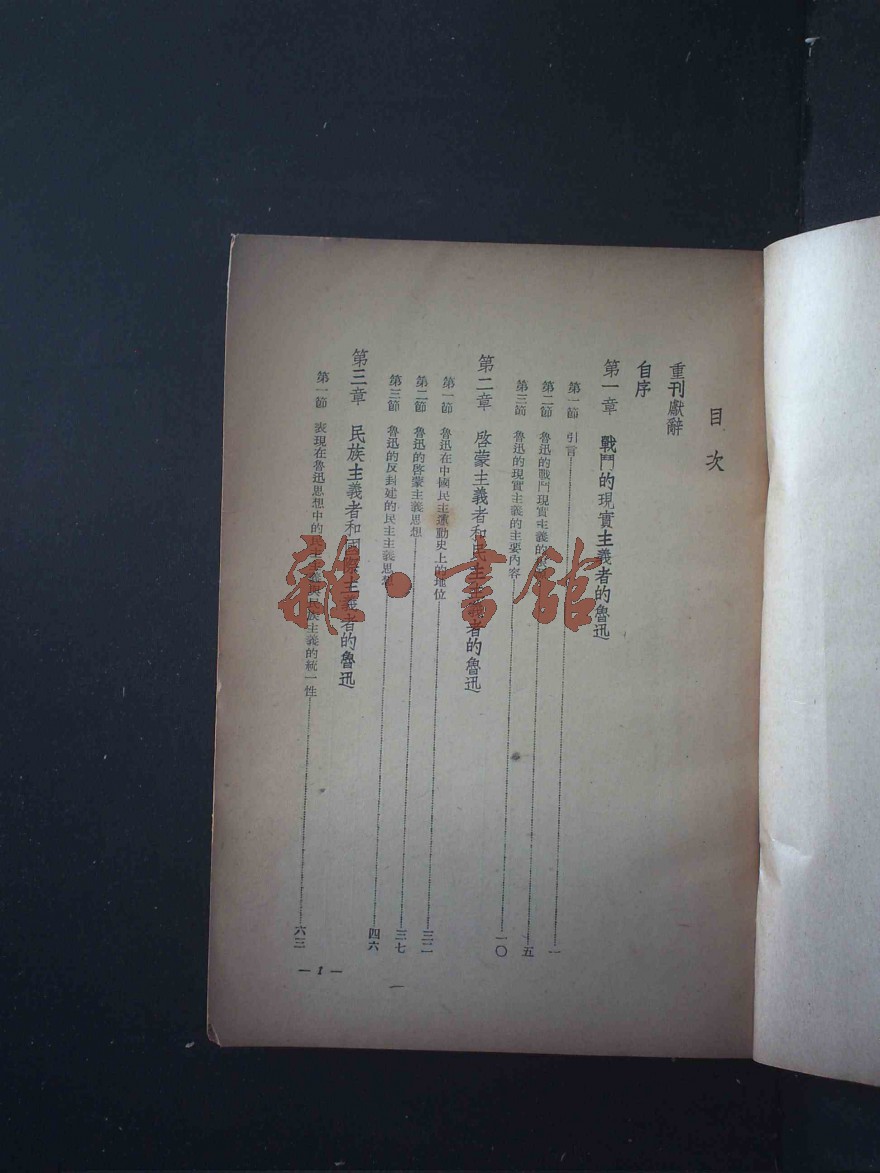 目次
重刊獻辭
自序
第一章 戰鬥的現實主義者的魯迅
第一節 引言 一
第二節 魯迅的戰鬥現實主義的 五
第三節 魯迅的現實主義的主要內容 一〇
第二章 啓蒙主義者和民主主義者的魯迅
第一節 魯迅在中國民主運動史上的地位 三二
第二節 魯迅的啓蒙主義思想 三七
第三節 魯迅的反封建的民主主義思想 四六
第三章 民族主義者和國際主義者的魯迅
第一節 表現在魯迅思想中的民主主義與民族主義的統一性 六三
— 1 —
雜·書館